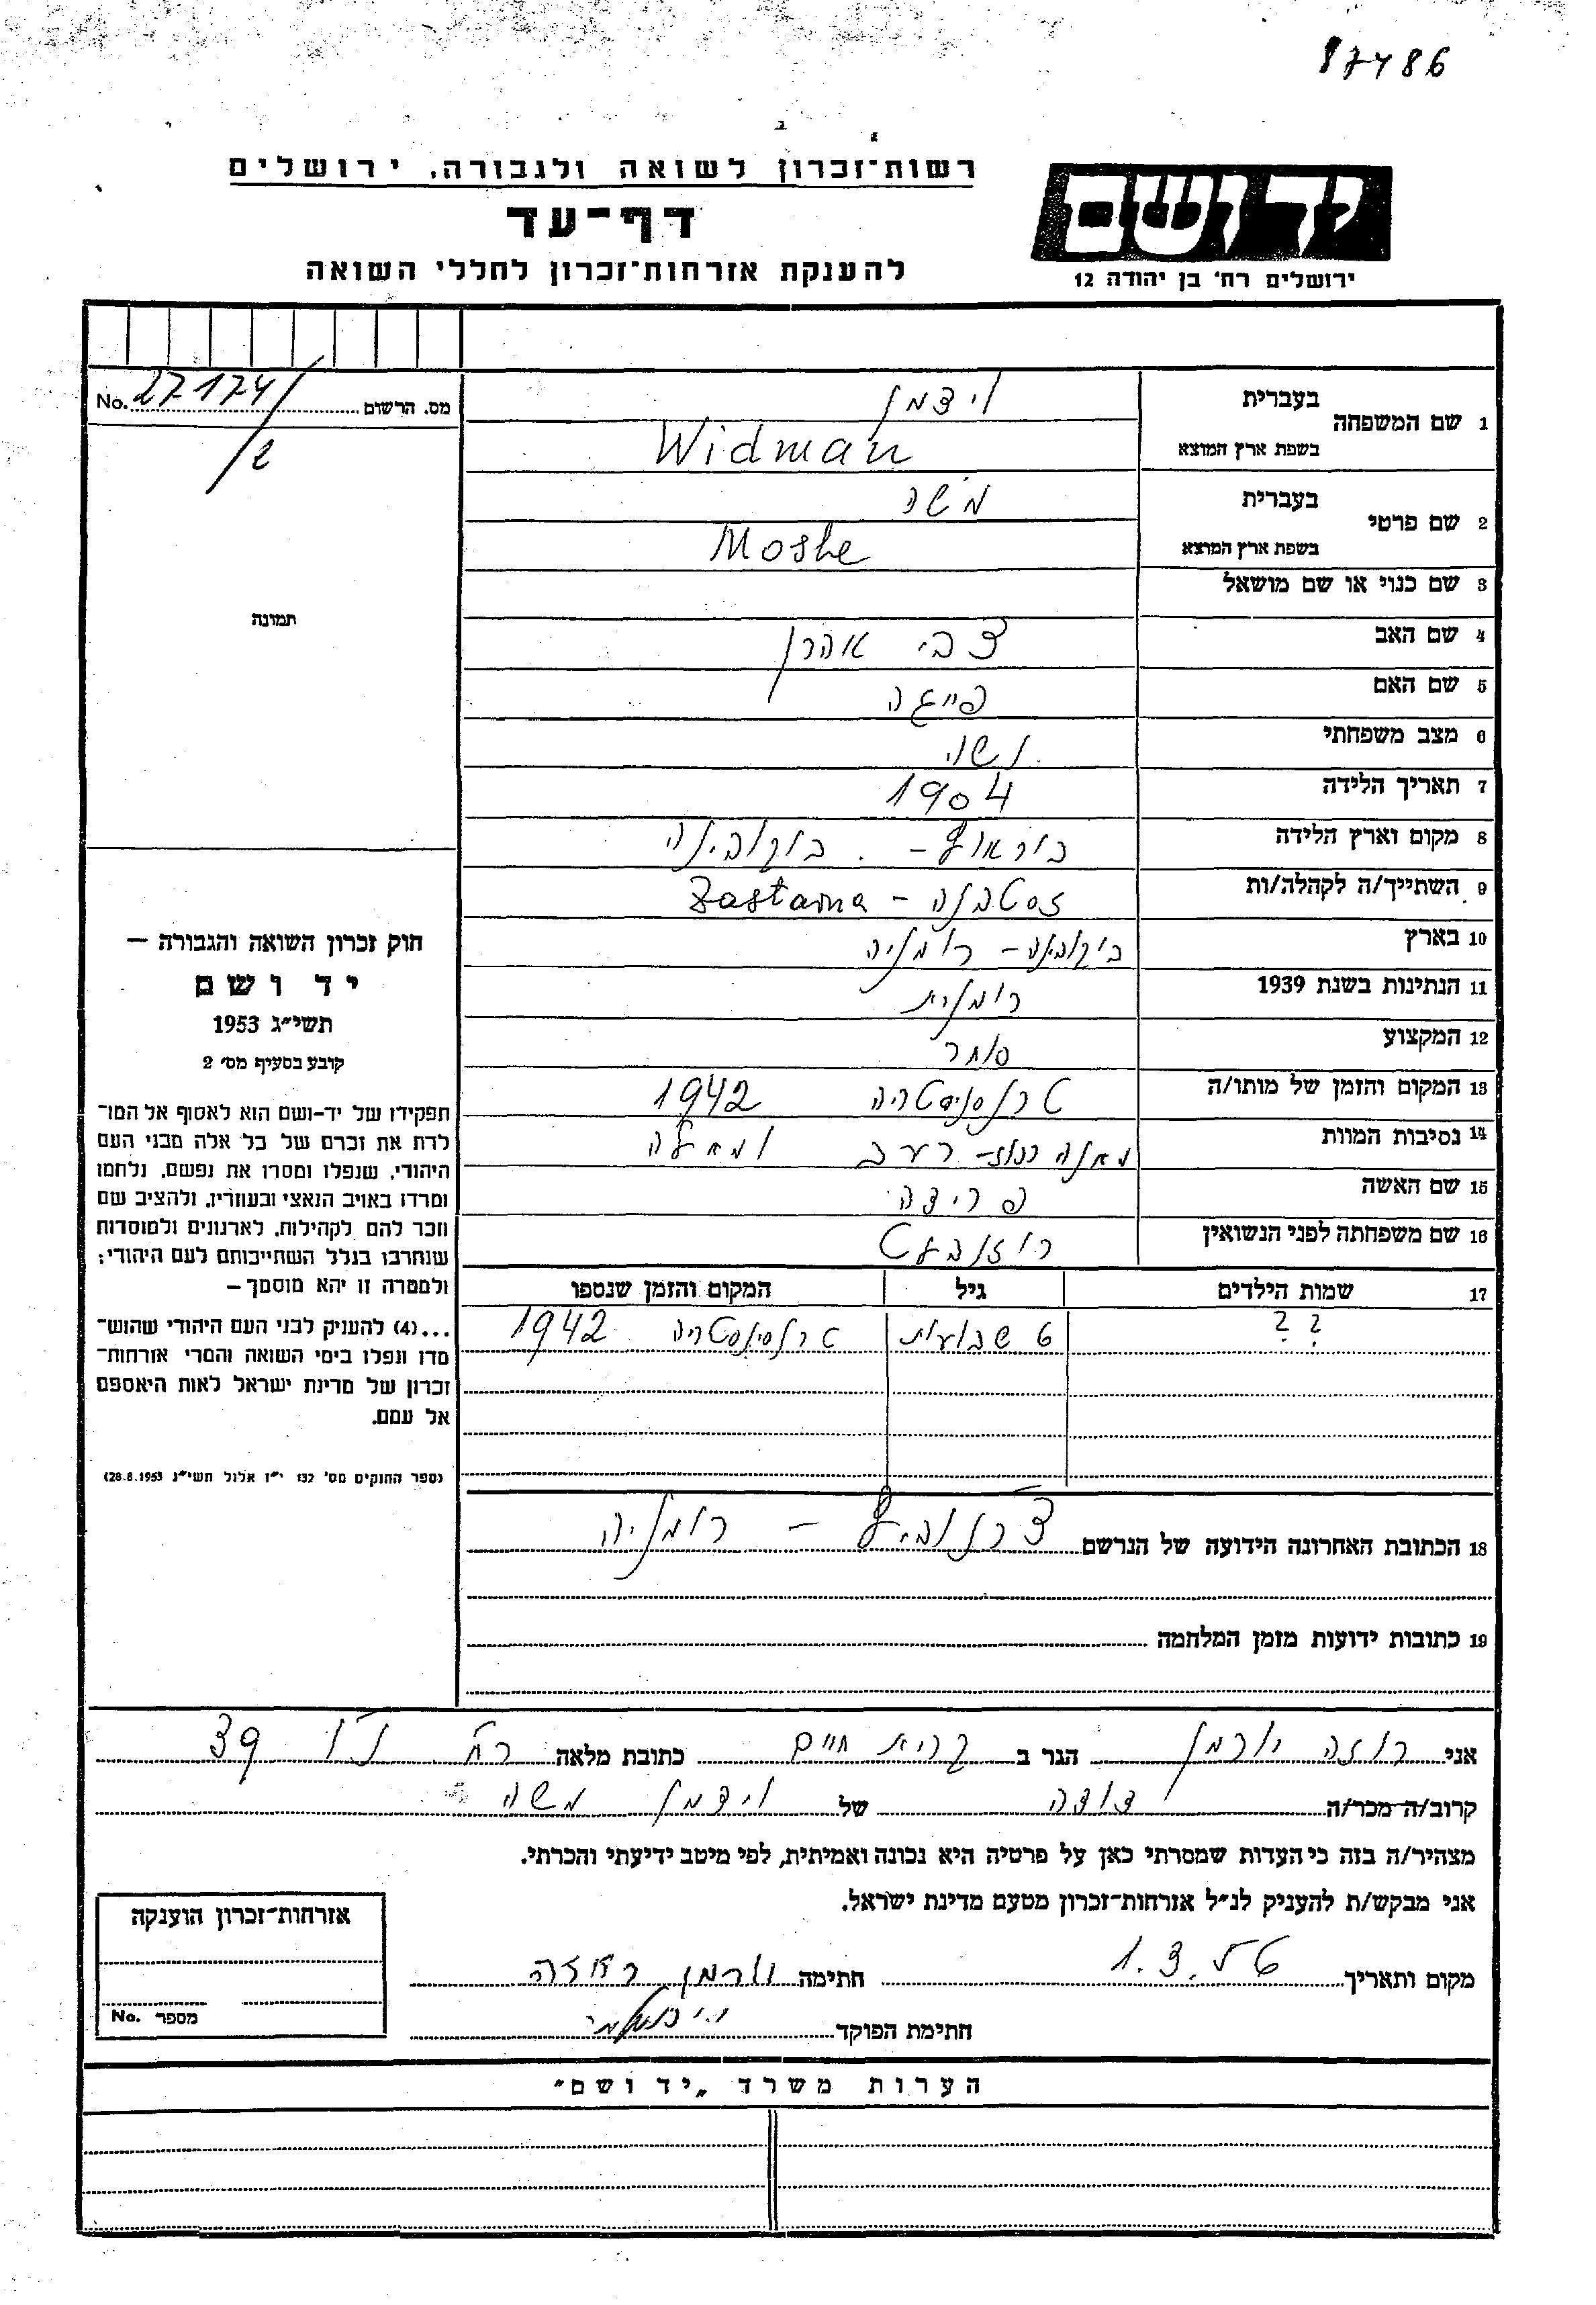 87486
רשות־זכרון לשואה ולגבורה, ירושלים
דף־עד
להענקת אזרחות־זכרון לחללי השואה
יד ושם
ירושלים רח' בן יהודה 12
מס. הרשום 27174/ No.
2
תמונה
1 שם המשפחה בעברית וידמן
בשפת ארץ המוצא Widman
2 שם פרטי בעברית משה
בשפת ארץ המוצא Moshe
3 שם כנוי או שם מושאל
4 שם האב צבי אהרן
5 שם האם פייגה
6 מצב משפחתי נשוי
7 תאריך הלידה 1904
8 מקום וארץ הלידה בוקובינה
9 השתייך/ה לקהלה/ות זסטבנה - Zastavna
10 בארץ בוקובינה - רומניה
11 הנתינות בשנת 1939 רומנית
12 המקצוע סוחר
13 המקום והזמן של מותו/ה טרנסניסטריה 1942
14 נסיבות המוות רעב
15 שם האשה פרידה
16 שם משפחתה לפני הנשואין
17 שמות הילדים | גיל | המקום והזמן שנספו
? ? 6 שבועות טרנסניסטריה 1942
חוק זכרון השואה והגבורה —
יד ושם
תשי״ג 1953
קובע בסעיף מס׳ 2
תפקידו של יד-ושם הוא לאסוף אל המו־
לדת את זכרם של כל אלה מבני העם
היהודי, שנפלו ומסרו את נפשם, נלחמו
ומרדו באויב הנאצי ובעוזריו, ולהציב שם
וזכר להם לקהילות, לארגונים ולמוסדות
שנחרבו בגלל השתייכותם לעם היהודי;
ולמטרה זו יהא מוסמך —
...(4) להעניק לבני העם היהודי שהוש־
מדו ונפלו בימי השואה והמרי אזרחות־
זכרון של מדינת ישראל לאות היאספם
אל עמם.
(ספר החוקים מס' 132 י״ז אלול תשי״ג 28.8.1953)
18 הכתובת האחרונה הידועה של הנרשם צרנוביץ - רומניה
19 כתובות ידועות מזמן המלחמה
אני רוזה וורמן הגר ב קרית חיים כתובת מלאה רח' 39
קרוב/ה מכר/ה דודה של וידמן משה
מצהיר/ה בזה כי העדות שמסרתי כאן על פרטיה היא נכונה ואמיתית, לפי מיטב ידיעתי והכרתי.
אני מבקש/ת להעניק לנ״ל אזרחות־זכרון מטעם מדינת ישראל.
מקום ותאריך 1.3.56 חתימה וורמן רוזה
חתימת הפוקד
אזרחות־זכרון הוענקה
מספר No.
הערות משרד „יד ושם״